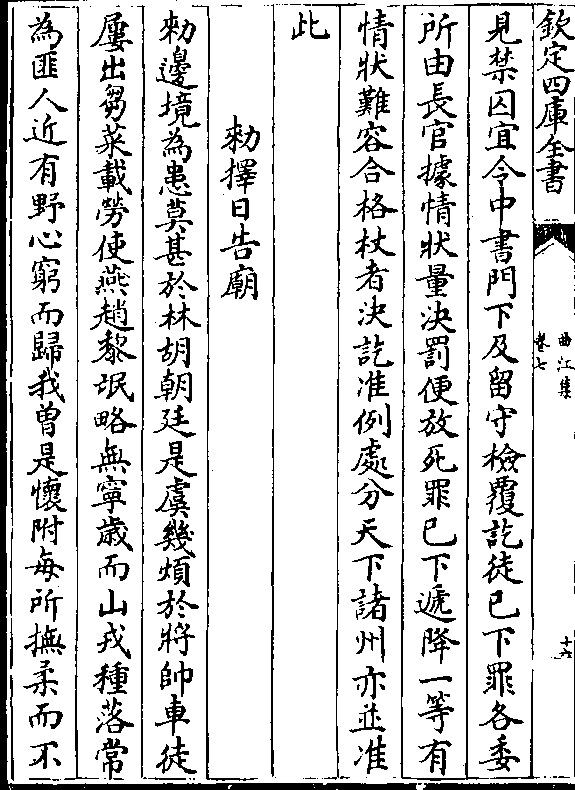 欽定四庫全書
曲江集
卷七
十六
見禁囚宜令中書門下及留守檢覆訖徒已下罪各委
所由長官據情狀量決罰便放死罪已下遞降一等有
情狀難容合格杖者決訖准例處分天下諸州亦並准
此
勅擇日告廟
勅邊境為患莫甚於林胡朝廷是虞幾煩於將帥車徒
屢出芻茭載勞使燕趙黎氓略無寧歲而山戎種落常
為匪人近有野心窮而歸我曾是懷附每所撫柔而不